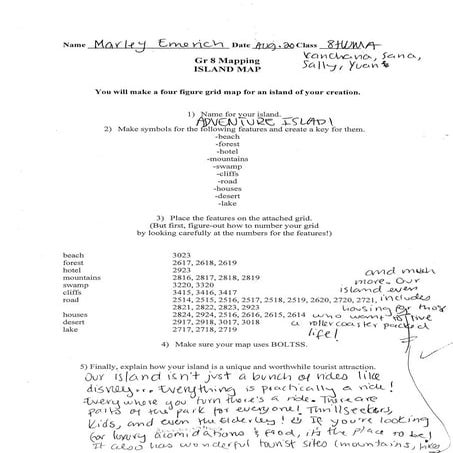 Name Marley Emerich Date Aug. 20 Class 8HUMA
Kanchana, Sana,
Sally, Yuan
Gr 8 Mapping
ISLAND MAP
You will make a four figure grid map for an island of your creation.
1) Name for your island.
ADVENTURE ISLAD!
2) Make symbols for the following features and create a key for them.
-beach
-forest
-hotel
-mountains
-swamp
-cliffs
-road
-houses
-desert
-lake
3) Place the features on the attached grid.
(But first, figure-out how to number your grid
by looking carefully at the numbers for the features!)
beach 3023
forest 2617, 2618, 2619
hotel 2923
mountains 2816, 2817, 2818, 2819
swamp 3220, 3320
cliffs 3415, 3416, 3417
road 2514, 2515, 2516, 2517, 2518, 2519, 2620, 2720, 2721,
houses 2824, 2924, 2516, 2616, 2615, 2614
desert 2917, 2918, 3017, 3018
lake 2717, 2718, 2719
4) Make sure your map uses BOLTSS.
5) Finally, explain how your island is a unique and worthwhile tourist attraction.
Our island isn't just a bunch of rides like
disney... Everything is practically a ride!
Everywhere you turn there's a ride. There are
parts of the park for everyone! Thrillseekers,
kids, and even the elderley! If you're looking
for luxury acomidations & food, it's the place to be!
It also has wonderful tourist sites (mountains, lake
and much
more. Our
island even
includes
housing for those
who want to live
a rollercoaster packed
life!